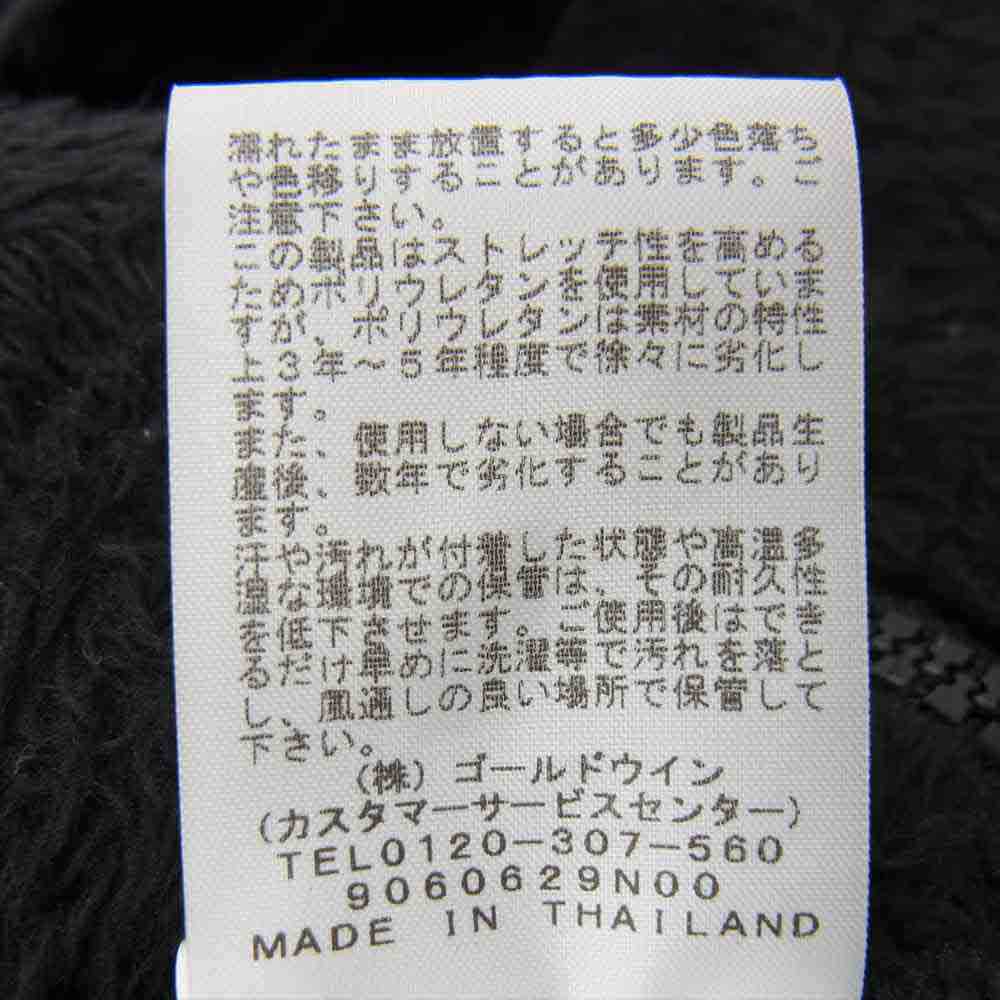 濡れたまま放置すると多少色落ち
や色移りすることがあります。ご
注意下さい。
この製品はストレッチ性を高める
ためポリウレタンを使用していま
すが、ポリウレタンは素材の特性
上3年～5年程度で徐々に劣化し
ます。
また、使用しない場合でも製品生
産後、数年で劣化することがあり
ます。
汗や汚れが付着した状態や高温多
湿な環境での保管は、その耐久性
を低下させます。ご使用後はでき
るだけ早めに洗濯等で汚れを落と
し、風通しの良い場所で保管して
下さい。
(株) ゴールドウイン
(カスタマーサービスセンター)
TEL0120-307-560
9060629N00
MADE IN THAILAND